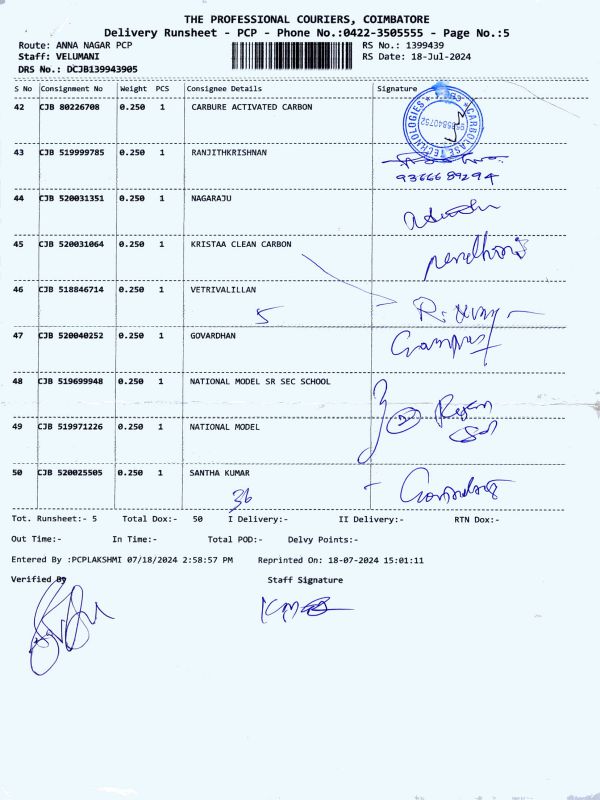 THE PROFESSIONAL COURIERS, COIMBATORE
Delivery Runsheet - PCP - Phone No.:0422-3505555 - Page No.:5
Route: ANNA NAGAR PCP RS No.: 1399439
Staff: VELUMANI RS Date: 18-Jul-2024
DRS No.: DCJB139943905
S No Consignment No Weight PCS Consignee Details Signature
42 CJB 80226708 0.250 1 CARBURE ACTIVATED CARBON
43 CJB 519999785 0.250 1 RANJITHKRISHNAN
9366689294
44 CJB 520031351 0.250 1 NAGARAJU
45 CJB 520031064 0.250 1 KRISTAA CLEAN CARBON
46 CJB 518846714 0.250 1 VETRIVALILLAN
5
47 CJB 520040252 0.250 1 GOVARDHAN
48 CJB 519699948 0.250 1 NATIONAL MODEL SR SEC SCHOOL
49 CJB 519971226 0.250 1 NATIONAL MODEL
50 CJB 520025505 0.250 1 SANTHA KUMAR
36
Tot. Runsheet:- 5 Total Dox:- 50 I Delivery:- II Delivery:- RTN Dox:-
Out Time:- In Time:- Total POD:- Delvy Points:-
Entered By :PCPLAKSHMI 07/18/2024 2:58:57 PM Reprinted On: 18-07-2024 15:01:11
Verified By Staff Signature